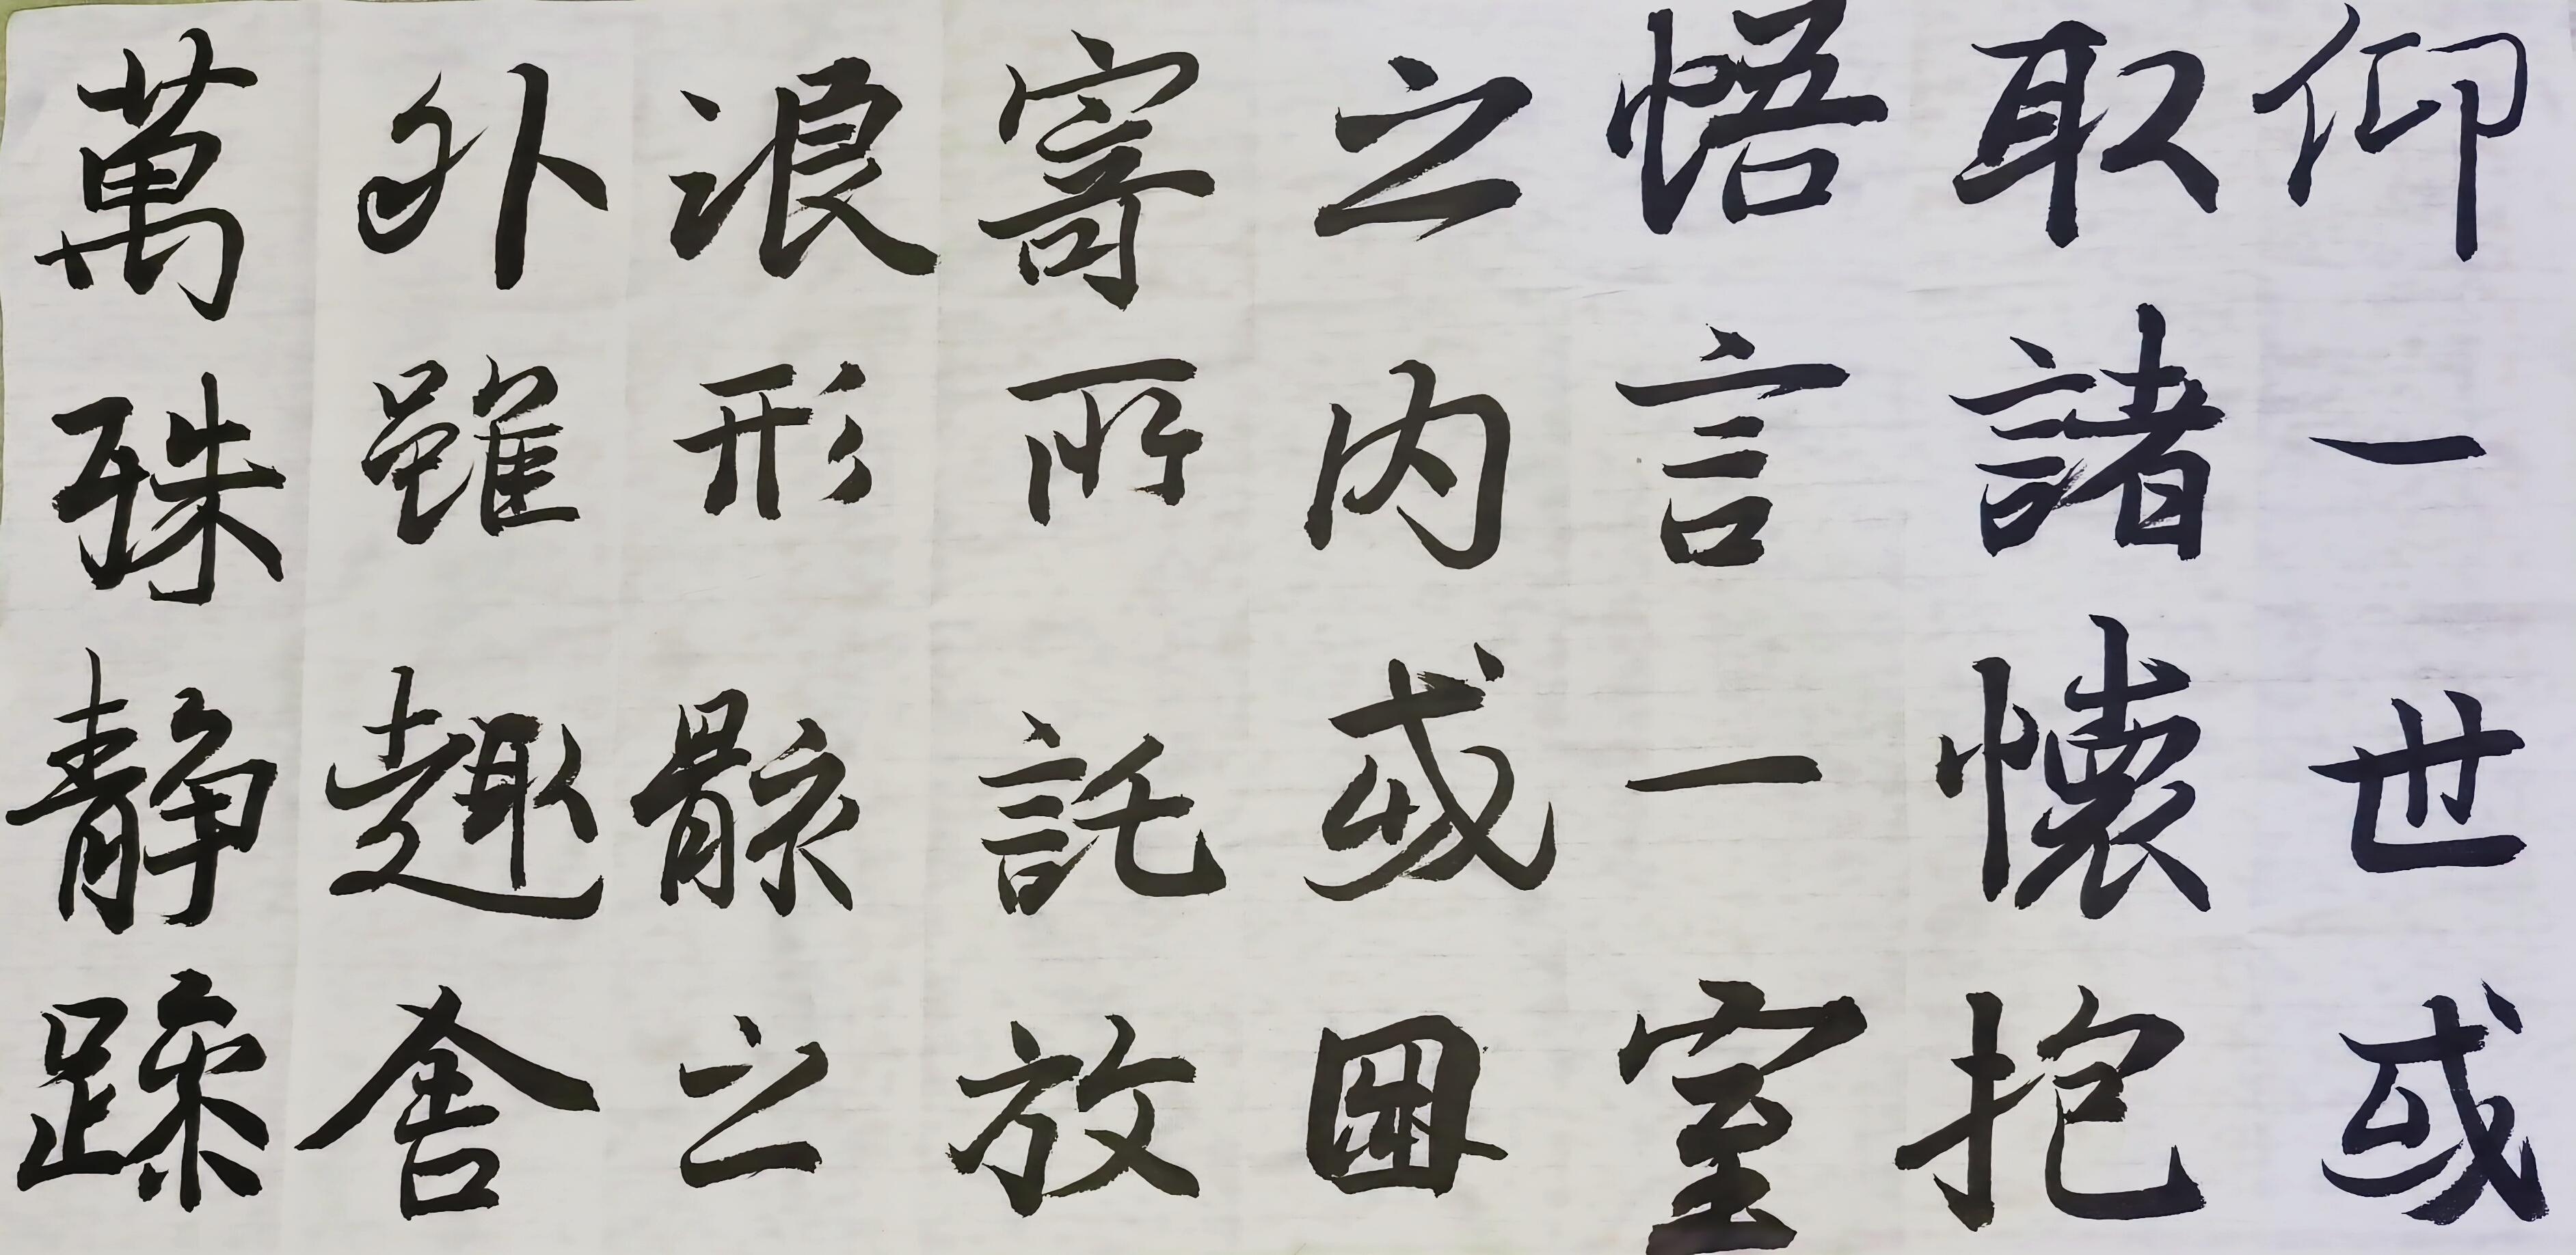 仰一世或
取諸懷抱
悟言一室
之内或因
寄所託放
浪形骸之
外雖趣舍
萬殊静躁